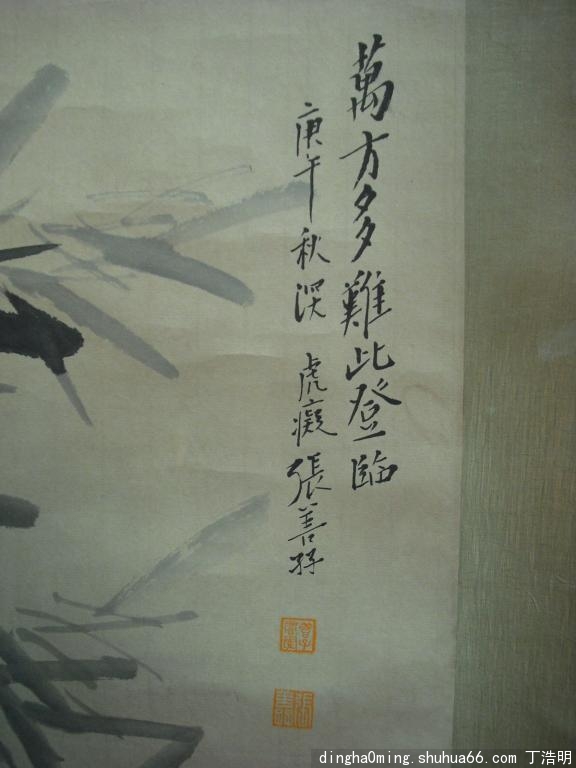 萬方多難此登臨
庚午秋深 虎癡 張善孖
dingha0ming.shuhua66.com 丁浩明